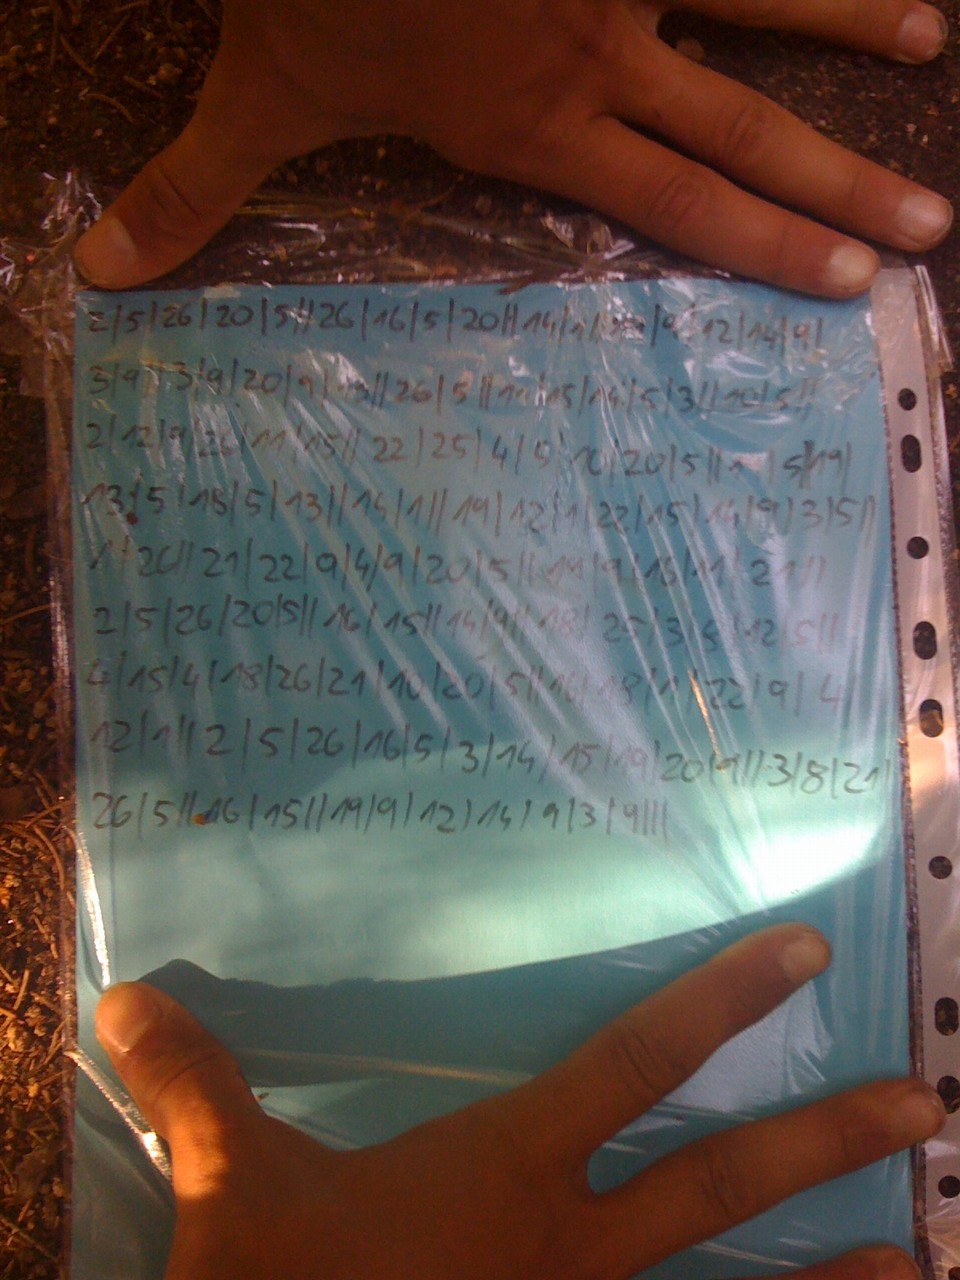 2/5/26/20/5//26/16/5/20//14/1//19/9/12/14/9/
3/9//3/9/20/9/13//26/5//11/15/14/5/3//10/5//
2/12/9/26/11/15//22/25/4/5/10/20/5//19/5//19/
13/5/18/5/13//14/1//19/12/1/22/15/14/9/3/5//
1/20//21/22/9/4/9/20/5//19/9/16/11/21//
2/5/26/20/5//16/15//14/9//18/25/3/8/12/5//
4/15/4/18/26/21/10/20/5//16/18/1/22/9/4/
12/1//2/5/26/16/5/3/14/15/19/20/9//3/8/21/
26/5//16/15//19/9/12/14/9/3/9///